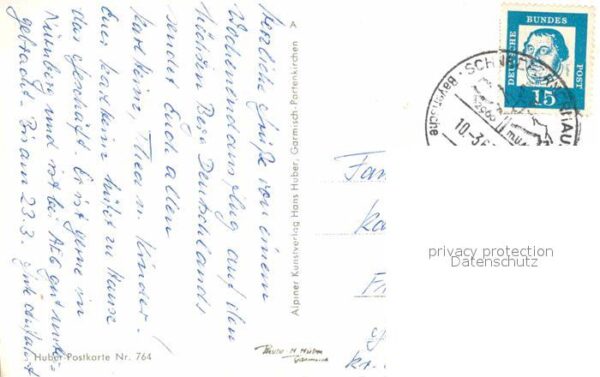 Herzliche Grüße von einem
Wochenendausflug auf den
höchsten Berg Deutschlands
sendet Euch allen
Karlheinz, Thea u. Kinder.
Euer Karlheinz hütet zu Hause
das Geschäft. Er ist gerne in
Nürnberg und ist bei AEG gut
gebracht. Bis am 23.3.
A
Alpiner Kunstverlag Hans Huber, Garmisch-Partenkirchen
Huber-Postkarte Nr. 764
Photo H. Huber
Garmisch
DEUTSCHE
BUNDES
POST
15
Bayerische
2966 m
10.-3.6
Fam
Ka
Fr
privacy protection
Datenschutz
g
Kr.